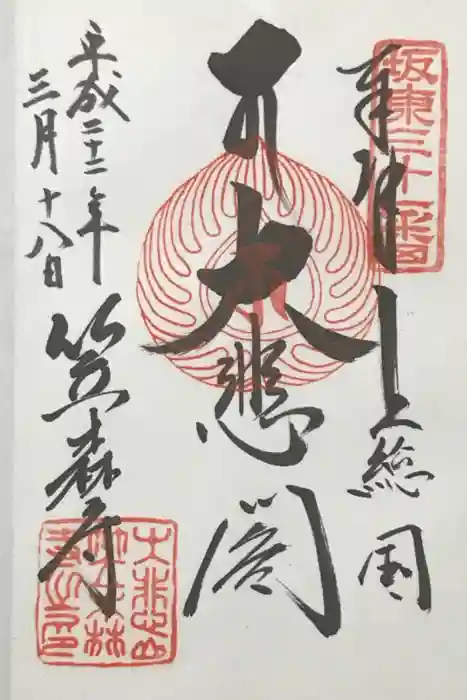 坂東三十一番
奉拝 上総国
大悲閣
平成二十二年
三月十八日
笠森寺
大悲山